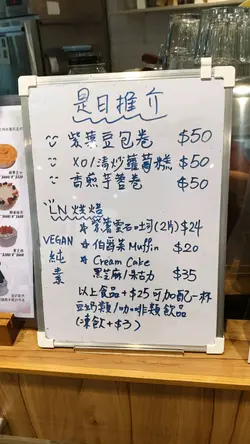 是日推介
紫葉豆包卷 $50
XO/清炒蘿蔔糕 $50
香煎芋簽卷 $50
LN烘焙
VEGAN 純素
紫薯雲石吐司(2片) $24
伯爵茶Muffin $20
Cream Cake
黑芝麻/朱古力 $35
以上食品+$25可加配一杯
豆奶類/咖啡類飲品
(凍飲+$3)